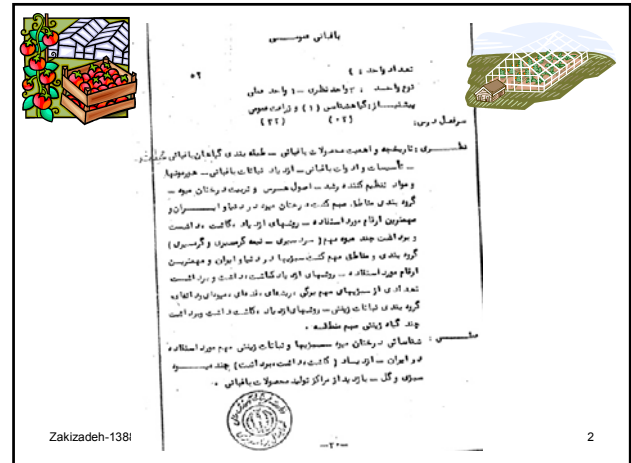 باغبانی عمومی
۵۲
تعداد واحد : ۴
نوع واحد : ۳ واحد نظری – ۱ واحد عملی
پیشنیاز : گیاهشناسی (۱) و زراعت عمومی
(۰۲) (۳۲)
سرفصل درس :
نظری : تاریخچه و اهمیت محصولات باغبانی – طبقه بندی گیاهان باغبانی
– تأسیسات و ادوات باغبانی – ازدیاد نباتات باغبانی – هورمونها
و مواد تنظیم کننده رشد – اصول هرس و تربیت درختان میوه –
گروه بندی مناطق مهم کشت درختان میوه در دنیا و ایران و
مهمترین ارقام مورد استفاده – روشهای ازدیاد ، کاشت ، داشت
و برداشت چند میوه مهم ( سردسیری – نیمه گرمسیری و گرمسیری )
گروه بندی و مناطق مهم کشت سبزیها در دنیا و ایران و مهمترین
ارقام مورد استفاده – روشهای ازدیاد کاشت ، داشت و برداشت
تعدادی از سبزیهای مهم برگی ، ریشه‌ای ، غده‌ای ، میوه‌ای و دانه‌ای ،
گروه بندی نباتات زینتی – روشهای ازدیاد ، کاشت داشت وبرداشت
چند گیاه زینتی مهم منطقه .
عملی : شناسائی درختان میوه – سبزیها و نباتات زینتی مهم مورد استفاده
در ایران – ازدیاد ( کاشت ، داشت ، برداشت ) چند میوه
سبزی و گل – بازدید از مراکز تولید محصولات باغبانی .
–۲۰–
Zakizadeh-138
2